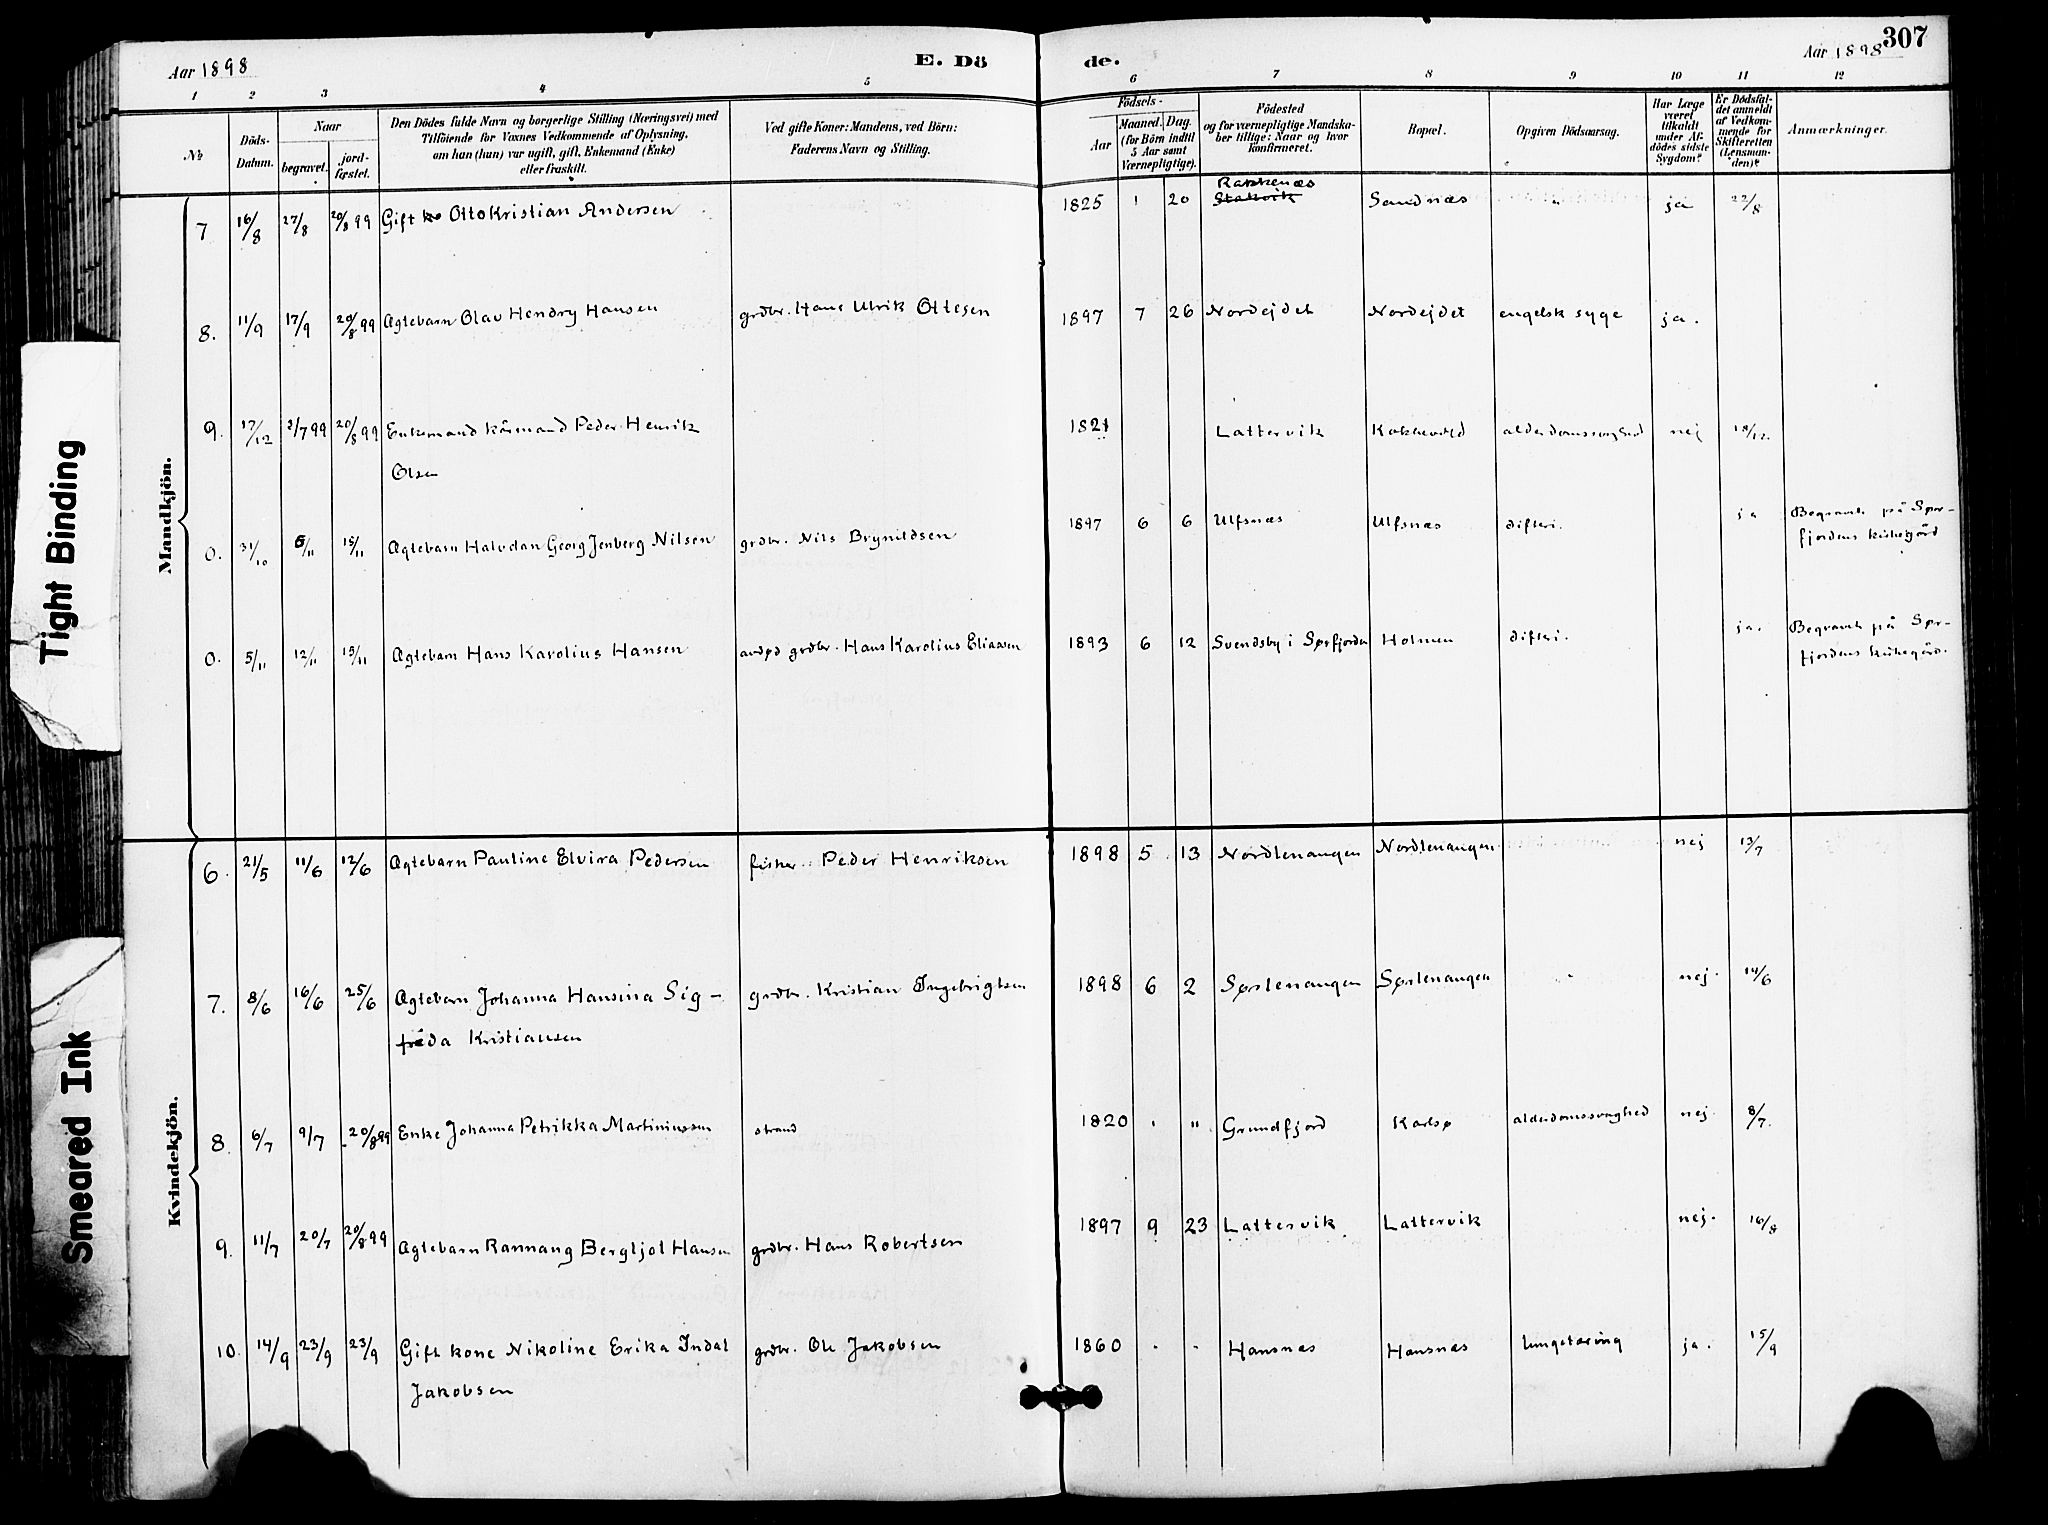 Aar 1898
E. Dö
de.
Aar 1898
307
1 2 3 4 5 6 7 8 9 10 11 12
№ Döds-Datum. Naar begravet. jord-fæstet.
Den Dödes fulde Navn og borgerlige Stilling (Næringsvei) med
Tilföiende for Voxnes Vedkommende af Oplysning,
om han (hun) var ugift, gift, Enkemand (Enke)
eller fraskilt.
Ved gifte Koner: Mandens, ved Börn:
Faderens Navn og Stilling.
Födsels-
Aar Maaned. Dag.
(for Börn indtil
5 Aar samt
Værnepligtige).
Födested
og for værnepligtige Mandska-
ber tillige: Naar og hvor
konfirmeret.
Bopæl.
Opgiven Dödsaarsag.
Har Læge
været
tilkaldt
under Af-
dödes sidste
Sygdom?
Er Dödsfal-
det anmeldt
af Vedkom-
mende for
Skifteretten
(Lensman-
den)?
Anmærkninger.
Mandkjön.
Rakkenæs
7 16/8 27/8 20/8 99 Gift Otto Kristian Andersen 1825 1 20 Stakvik Sandnæs " ja 22/8
8. 11/9 17/9 20/8 99 Agtebarn Olav Hendry Hansen grdbr. Hans Ulrik Ottesen 1897 7 26 Nordejdet Nordejdet engelsk syge ja.
9. 17/12 2/7 99 20/8 99 Enkemand kårmand Peder Henrik 1821 Lattervik alderdomssvaghed nej 18/12.
Olsen
0. 31/10 6/11 15/11 Agtebarn Halvdan Georg Jenberg Nilsen grdbr. Nils Brynildsen 1897 6 6 Ulfsnæs Ulfsnæs difteri. ja Begravet på Sør-
fjordens kirkegård
0. 5/11 12/11 15/11 Agtebarn Hans Karolius Hansen avdød grdbr. Hans Karolius Eliassen 1893 6 12 Svendsby i Sørfjorden Holmen difteri. ja. Begravet på Sør-
fjordens kirkegård.
Kvindekjön.
6. 21/5 11/6 12/6 Agtebarn Pauline Elvira Pedersen fisker Peder Henriksen 1898 5 13 Nordlenangen Nordlenangen nej 13/7
7. 8/6 16/6 25/6 Agtebarn Johanna Hansina Sig- grdbr. Kristian Ingebrigtsen 1898 6 2 Sørlenangen Sørlenangen " nej. 14/6
frida Kristiansen
8. 6/7 9/7 20/8 99 Enke Johanna Petrikka Martiniussen strand 1820 " " Grundfjord Karlsø alderdomssvaghed nej 8/7.
9. 11/7 20/7 20/8 99 Agtebarn Rannang Bergljot Hansen grdbr. Hans Robertsen 1897 9 23 Lattervik Lattervik nej. 16/8
10. 14/9 23/9 23/9 Gift kone Nikoline Erika Indal grdbr. Ole Jakobsen 1860 " " Hansnæs Hansnæs lungetæring ja. 15/9
Jakobsen
Tight Binding
Smeared Ink